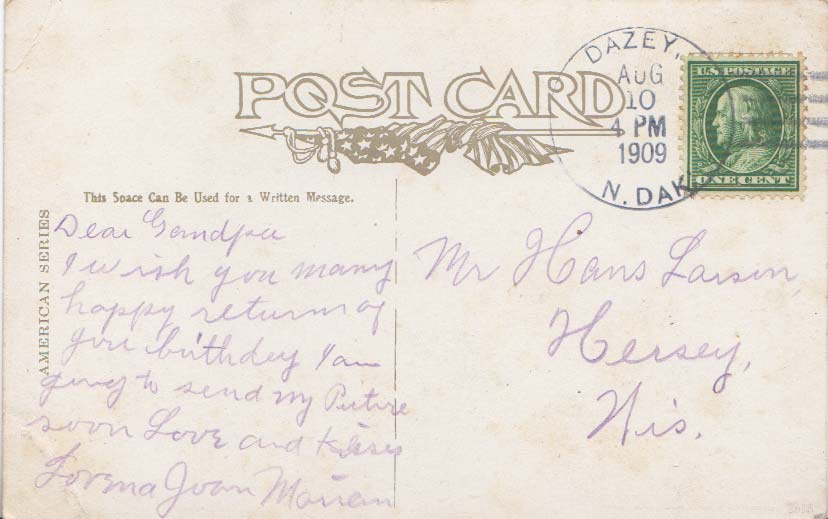 POST CARD
DAZEY,
AUG
10
4 PM
1909
N. DAK.
U.S. POSTAGE
ONE CENT
This Space Can Be Used for a Written Message.
AMERICAN SERIES
Dear Grandpa
I wish you many
happy returns of
your birthday I am
going to send my Picture
soon Love and Kisses
Joan
Mr Hans Larson,
Hersey,
Wis.